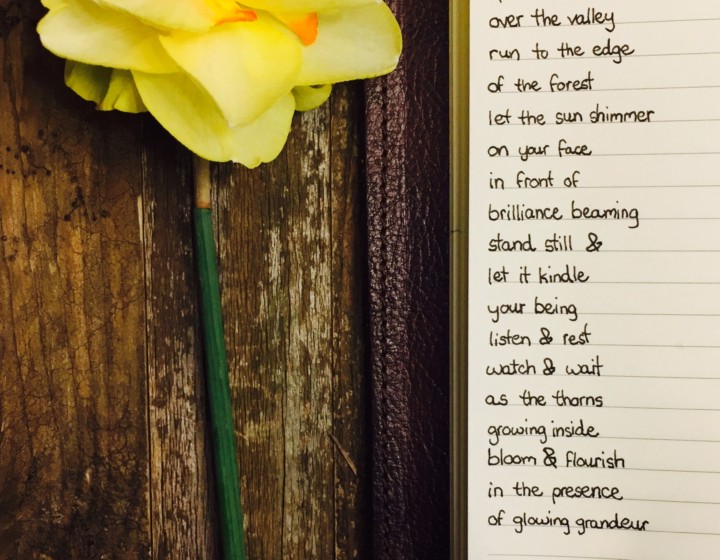 over the valley
run to the edge
of the forest
let the sun shimmer
on your face
in front of
brilliance beaming
stand still &
let it kindle
your being
listen & rest
watch & wait
as the thorns
growing inside
bloom & flourish
in the presence
of glowing grandeur